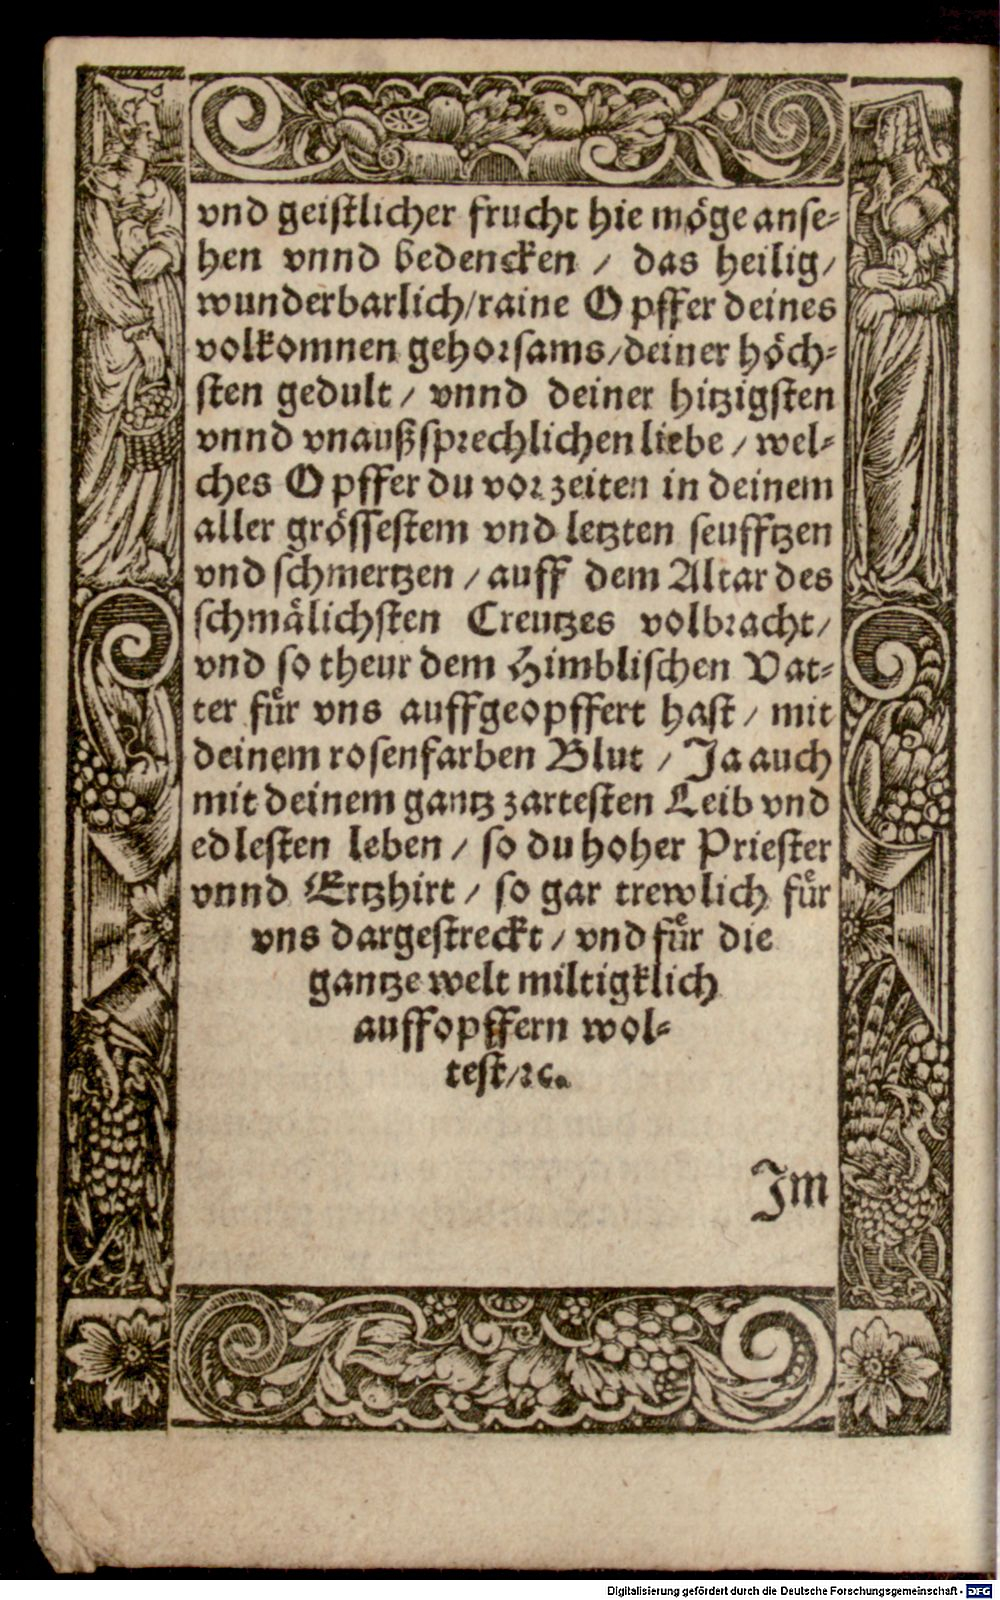 vnd geistlicher frucht hie möge anse-
hen vnnd bedencken / das heilig/
wunderbarlich/raine Opffer deines
volkomnen gehorsams/deiner höch-
sten gedult / vnnd deiner hitzigsten
vnnd vnaußsprechlichen liebe / wel-
ches Opffer du vor zeiten in deinem
aller grössestem vnd letzten seufftzen
vnd schmertzen / auff dem Altar des
schmälichsten Creutzes volbracht/
vnd so theur dem Himblischen Vat-
ter fuͤr vns auffgeopffert hast / mit
deinem rosenfarben Blut / Ja auch
mit deinem gantz zartesten Leib vnd
edlesten leben / so du hoher Priester
vnnd Ertzhirt / so gar trewlich fuͤr
vns dargestreckt / vnd fuͤr die
gantze welt miltigklich
auffopffern wol-
test/ꝛc.
Im
Digitalisierung gefördert durch die Deutsche Forschungsgemeinschaft - DFG